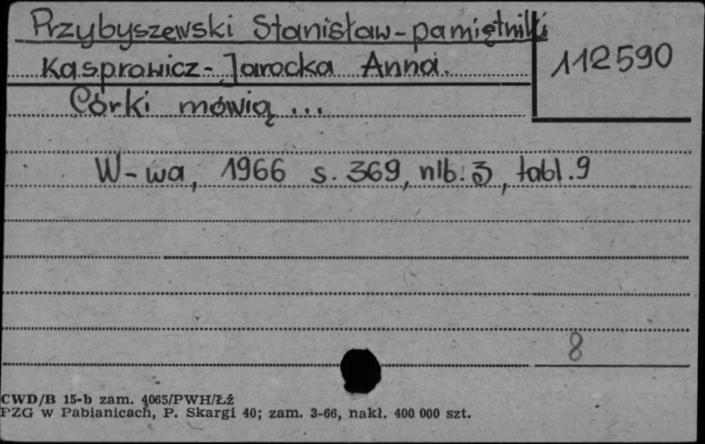 Przybyszewski Stanisław - pamiętniki
112590
Kasprowicz - Jarocka Anna.
Córki mówią ...
W-wa, 1966 s. 369, nlb. 3, tabl. 9
8
CWD/B 15-b zam. 4065/PWH/Łź
PZG w Pabianicach, P. Skargi 40; zam. 3-66, nakł. 400 000 szt.